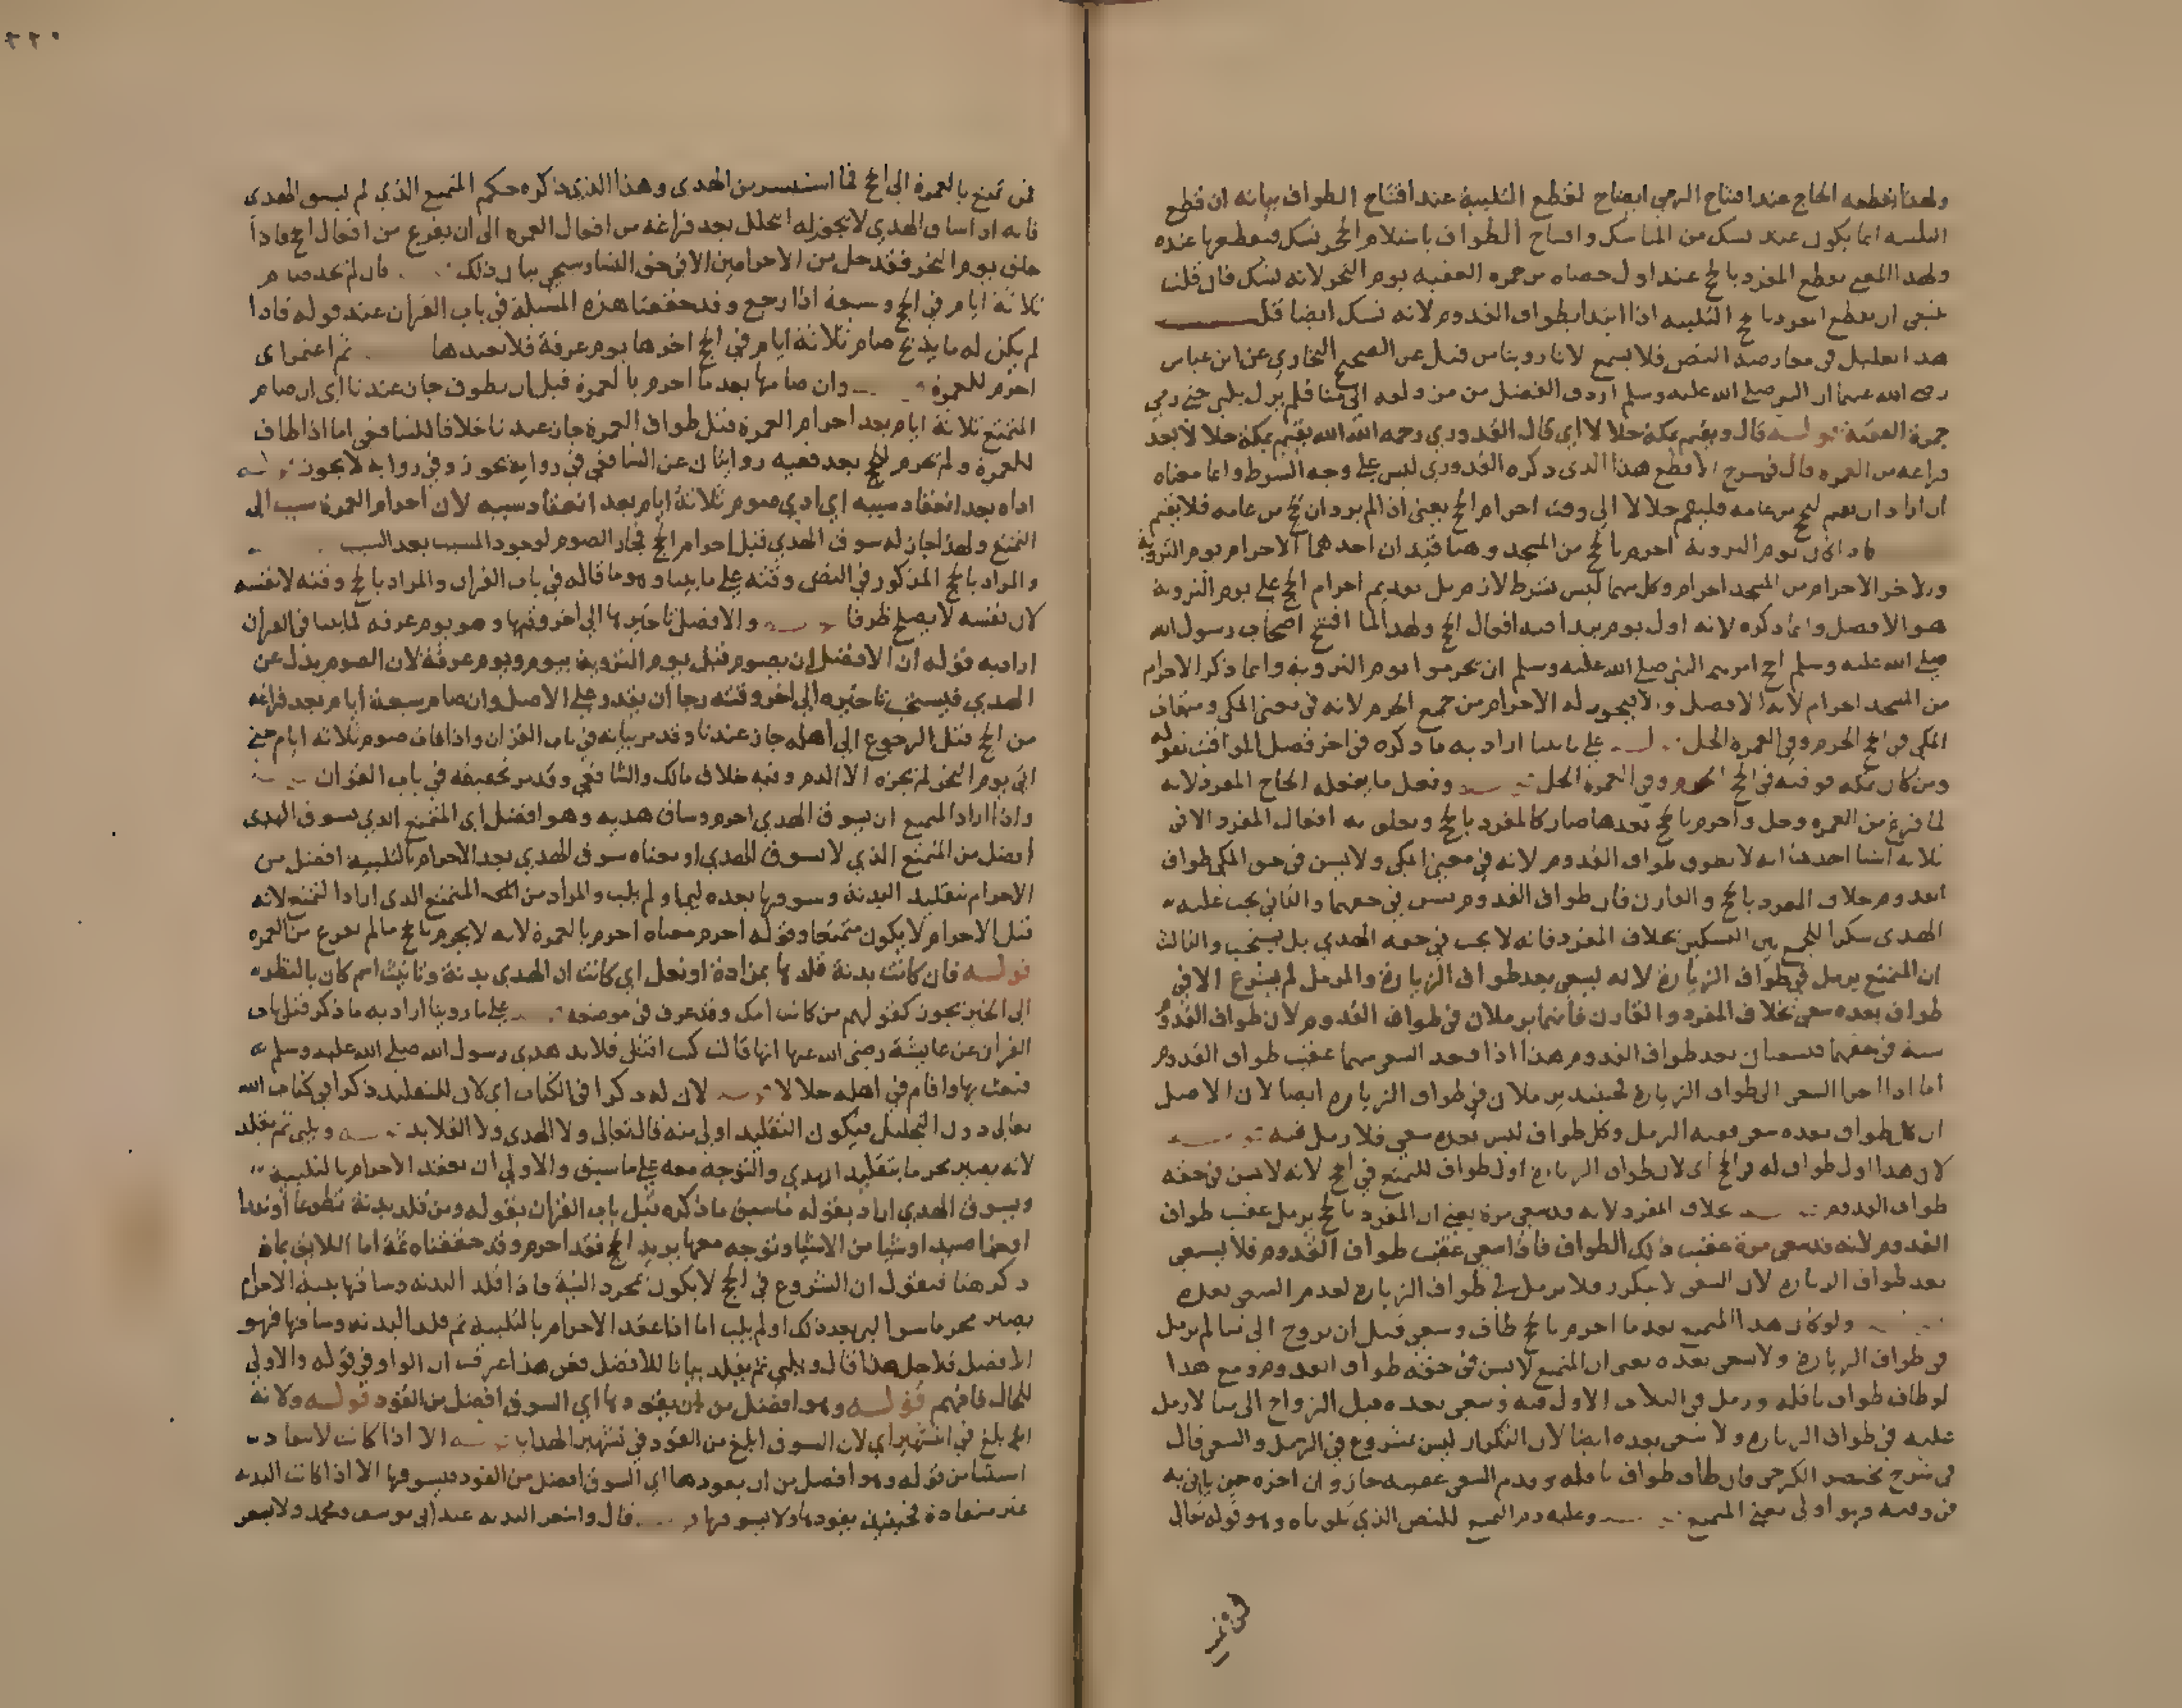 ولهذا يقطعه الحاج عند افتتاح الرمي ايضاح لقطع التلبية عند افتتاح الطواف بيانه ان قطع
التلبيه انما يكون عند نسك من المناسك وافتتاح الطواف باستلام الحجر نسك فيقطعها عنده
ولهذا المعنى يقطع المفرد بالحج عند اول حصاه من جمره العقبه يوم النحر لانه نسك فان قلت
ينبغي ان يقطع المفرد بالحج التلبيه اذا ابتدا بطواف القدوم لانه نسك ايضا قلت
هذا تعليل في معارضه النص فلا يسمع لانا روينا من قبل عن الصحيح البخاري عن ابن عباس
رضي الله عنهما ان النبي صلى الله عليه وسلم اردف الفضل من مزدلفه الى منا فلم يزل يلبي حتى رمى
جمرة العقبة قوله قال ويقيم بمكة حلالا اي قال القدوري رحمه الله يقيم بمكة حلالا بعد
فراغه من العمره قال في شرح الاقطع هذا الذي ذكره القدوري ليس على وجه الشرط وانما معناه
ان اراد ان يقيم ليحج من عامه فليقم حلالا الى وقت احرام الحج يعني اذا لم يرد ان يحج من عامه فلا يقيم
فاذا كان يوم الترويه احرم بالحج من المسجد وهنا قيدان احدهما الاحرام يوم التروية
والاخر الاحرام من المسجد الحرام وكل منهما ليس بشرط لازم بل تقديم احرام الحج على يوم التروية
هو الافضل وانما ذكره لانه اول يوم يبدا فيه افعال الحج ولهذا لما افتتح اصحاب رسول الله
صلى الله عليه وسلم الحج امرهم النبي صلى الله عليه وسلم ان يحرموا يوم التروية وانما ذكر الاحرام
من المسجد الحرام لانه الافضل والا يجوز له الاحرام من جميع الحرم لانه في معنى المكي وميقات
المكي في الحج الحرم وفي العمره الحل على ما بينا اراد به ما ذكره في اخر فصل المواقيت بقوله
ومن كان بمكه فوقته في الحج الحرم وفي العمره الحل ويفعل ما يفعله الحاج المفرد لانه
لما فرغ من العمره وحل واحرم بالحج بعدها صار كالمفرد بالحج ويتعلق به افعال المفرد الا في
ثلاثه اشيا احدها انه لا يطوف طواف القدوم لانه في معنى المكي ولا يسن في حق المكي طواف
القدوم خلاف المفرد بالحج والقارن فان طواف القدوم يسن في حقهما والثاني يجب عليه
الهدى شكرا للجمع بين النسكين بخلاف المفرد فانه لا يجب في حقه الهدي بل يستحب والثالث
ان المتمتع يرمل في طواف الزيارة لانه يسعى بعد طواف الزيارة والرمل لم يشرع الا في
طواف بعده سعي بخلاف المفرد والقارن فانهما يرملان في طواف القدوم لان طواف القدوم
سنه في حقهما فيسعيان بعد طواف القدوم هذا اذا وجد السعي منهما عقيب طواف القدوم
اما اذا اخرا السعي الى طواف الزيارة فحينئذ يرملان في طواف الزيارة ايضا لان الاصل
ان كل طواف بعده سعي ففيه الرمل وكل طواف ليس بعده سعي فلا رمل فيه
لان هذا اول طواف له في الحج اى لان طواف الزيارة اول طواف للمتمتع في الحج لانه لا يسن في حقه
طواف القدوم بخلاف المفرد لانه قد سعى مرة يعني ان المفرد بالحج يرمل عقيب طواف
القدوم لانه قد سعى مرة عقيب ذلك الطواف فاذا سعى عقيب طواف القدوم فلا يسعى
بعد طواف الزيارة لان السعي لا يتكرر ولا يرمل في طواف الزيارة لعدم السعي بعده
ولو كان هذا المتمتع بعد ما احرم بالحج طاف وسعى قبل ان يروح الى منا لم يرمل
في طواف الزيارة ولا يسعى بعده يعني ان المتمتع لا يسن في حقه طواف القدوم ومع هذا
لو طاف طواف نافله ورمل في الثلاث الاول فيه وسعى بعده قبل الرواح الى منا لا رمل
عليه في طواف الزيارة ولا سعى بعده ايضا لان التكرار ليس بمشروع في الرمل والسعي قال
في شرح مختصر الكرخي وان طاف طواف نافله وقدم السعي عقيبه جاز وان اخره حتى ياتي به
في وقته فهو اولى يعني المتمتع وعليه دم التمتع للنص الذي تلوناه وهو قوله تعالى
فمن تمتع
فمن تمتع بالعمرة الى الحج فما استيسر من الهدى وهذا الذي ذكره حكم المتمتع الذي لم يسق الهدى
فانه اذا ساق الهدي لا يجوز له التحلل بعد فراغه من افعال العمره الى ان يفرغ من افعال الحج فاذا
حلق يوم النحر فقد حل من الاحرامين الا في حق النساء وسيجي بيان ذلك فان لم يجد صام
ثلاثة ايام في الحج وسبعة اذا رجع وقد حققنا هذه المسئلة في باب القران عند قوله فاذا
لم يكن له ما يذبح صام ثلاثة ايام في الحج اخرها يوم عرفة فلا نعيدها ثم اعتمر اى
احرم للعمرة وان صامها بعد ما احرم بالعمرة قبل ان يطوف جاز عندنا اى ان صام
المتمتع ثلاثة ايام بعد احرام العمرة قبل طواف العمرة جاز عندنا خلافا للشافعي اما اذا طاف
للعمرة ولم يحرم للحج بعد ففيه روايتان عن الشافعي في رواية يجوز وفي رواية لا يجوز قوله
اداه بعد انعقاد سببه اي ادى صوم ثلاثة ايام بعد انعقاد سببه لان احرام العمرة سبب الى
التمتع ولهذا جاز له سوق الهدي قبل احرام الحج فجاز الصوم لوجود المسبب بعد السبب
والمراد بالحج المذكور في النص وقته على ما بينا وهو ما قاله في باب القران والمراد بالحج وقته لا نفسه
لان نفسه لا يصلح ظرفا والافضل تاخيرها الى اخر وقتها وهو يوم عرفه لما بينا في القران
اراد به قوله ان الافضل ان يصوم قبل يوم التروية بيوم ويوم عرفة لان الصوم بدل عن
الهدي فيستحب تاخيره الى اخر وقته رجا ان يقدر على الاصل وان صام سبعة ايام بعد فراغه
من الحج قبل الرجوع الى اهله جاز عندنا وقد مر بيانه في باب القران واذا فات صوم ثلاثه ايام حتى
اتى يوم النحر لم يجزه الا الدم وفيه خلاف مالك والشافعي وقد مر تحقيقه في باب القران
واذا اراد المتمتع ان يسوق الهدي احرم وساق هديه وهو افضل اى المتمتع الذي يسوق الهدى
افضل من المتمتع الذي لا يسوق الهدي او معناه سوق الهدي بعد الاحرام بالتلبية افضل من
الاحرام بتقليد البدنة وسوقها بعده ليها ولم يلب والمراد من المتمتع الذى اراد التمتع لانه
قبل الاحرام لا يكون متمتعا وقوله احرم معناه احرم بالعمرة لانه لا يحرم بالحج ما لم يفرغ من العمره
قوله فان كانت بدنة قلدها بمزادة او نعل اي كانت ان الهدى بدنة وتانيث اسم كان بالنظر
الى الخبر يجوز كقولهم من كانت امك وقد عرف في موضعه على ما روينا اراد به ما ذكر قبل باب
القران عن عايشة رضي الله عنها انها قالت كنت افتل قلايد هدي رسول الله صلى الله عليه وسلم
فبعث بها واقام في اهله حلالا لان له ذكرا في الكتاب اي لان للتقليد ذكرا في كتاب الله
تعالى دون التجليل فيكون التقليد اولى منه قال تعالى ولا الهدى ولا القلايد ويلبي ثم يقلد
لانه يصير محرما بتقليد الهدي والتوجه معه على ما سبق والاولى ان يعقد الاحرام بالتلبية
ويسوق الهدي اراد بقوله ما سبق ما ذكره قبل باب القران بقوله ومن قلد بدنة تطوعا او نذرا
او جزا صيد او شيا من الاشيا وتوجه معها يريد الحج فقد احرم وقد حققناه ثمة اما اللايق بما
ذكر هنا فنقول ان الشروع في الحج لا يكون بمجرد النية فاذا قلد البدنه وساقها بنية الاحرام
يصير محرما سوا لبى بعد ذلك او لم يلب اما اذا عقد الاحرام بالتلبية ثم قلد البدنه وساقها فهو
الافضل فلاجل هذا قال ويلبي ثم يقلد بيانا للافضل فعن هذا عرفت ان الواو في قوله والاولى
للحال فافهم قوله وهو افضل من ان يقودها اي السوق افضل من القود قوله ولانه
ابلغ في التشهير اي لان السوق ابلغ من القود في تشهير الهدايا الا اذا كانت لا تنقاد
استثنا من قوله وهو افضل من ان يقودها اي السوق افضل من القود فيسوقها الا اذا كانت البدنه
غير منقادة فحينئذ يقودها ولا يسوقها قال واشعر البدنه عند ابي يوسف ومحمد ولا يشعر